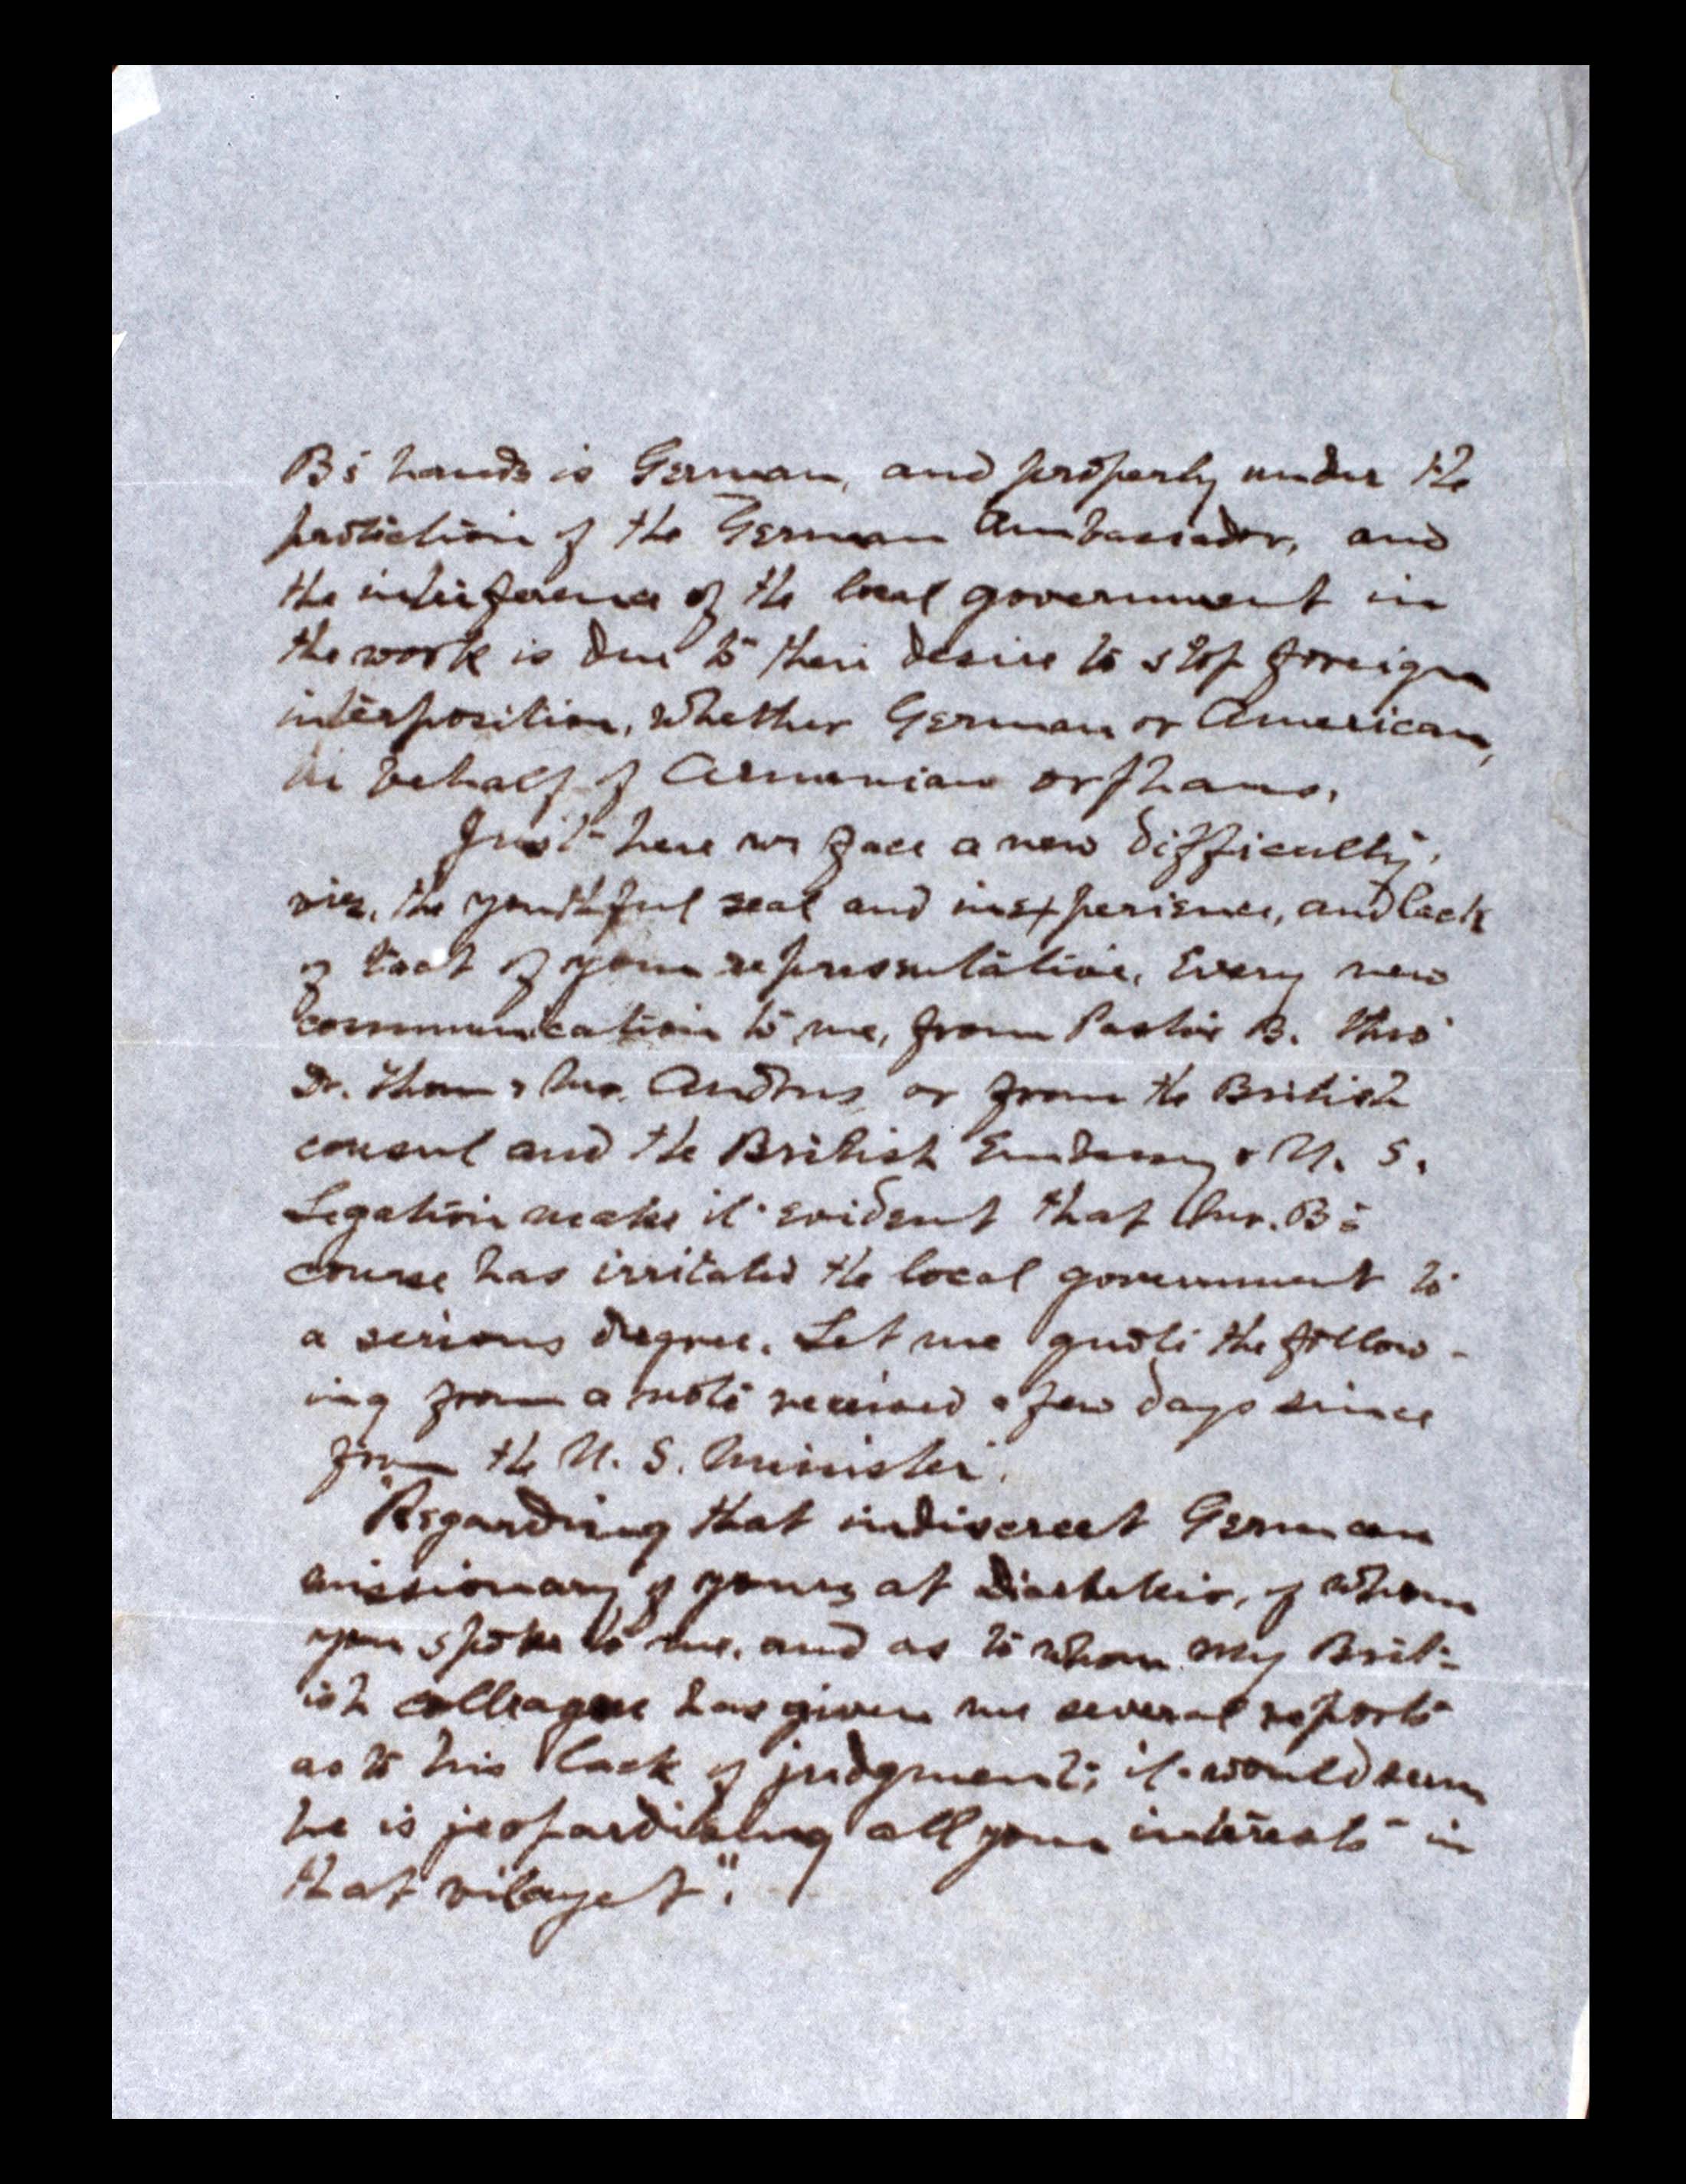 B's hands is German, and properly under the
protection of the German Ambassador, and
the interference of the local government in
the work is due to their desire to stop foreign
interposition, whether German or American,
in behalf of Armenian orphans.
Just here we face a new difficulty,
viz. the youthful zeal and inexperience, and lack
of tact of your representative. Every new
communication to me, from Pastor B. thro'
Dr. Thom & Mr. Andrus, or from the British
consul and the British Embassy & U. S.
Legation makes it evident that Mr. B's
course has irritated the local government to
a serious degree. Let me quote the follow-
ing from a note received a few days since
from the U. S. Minister.
"Regarding that indiscreet German
missionary of yours at Diarbekir, of whom
you spoke to me, and as to whom my Brit-
ish colleague has given me several reports
as to his lack of judgment; it would seem
he is jeopardizing all your interests in
that vilayet".